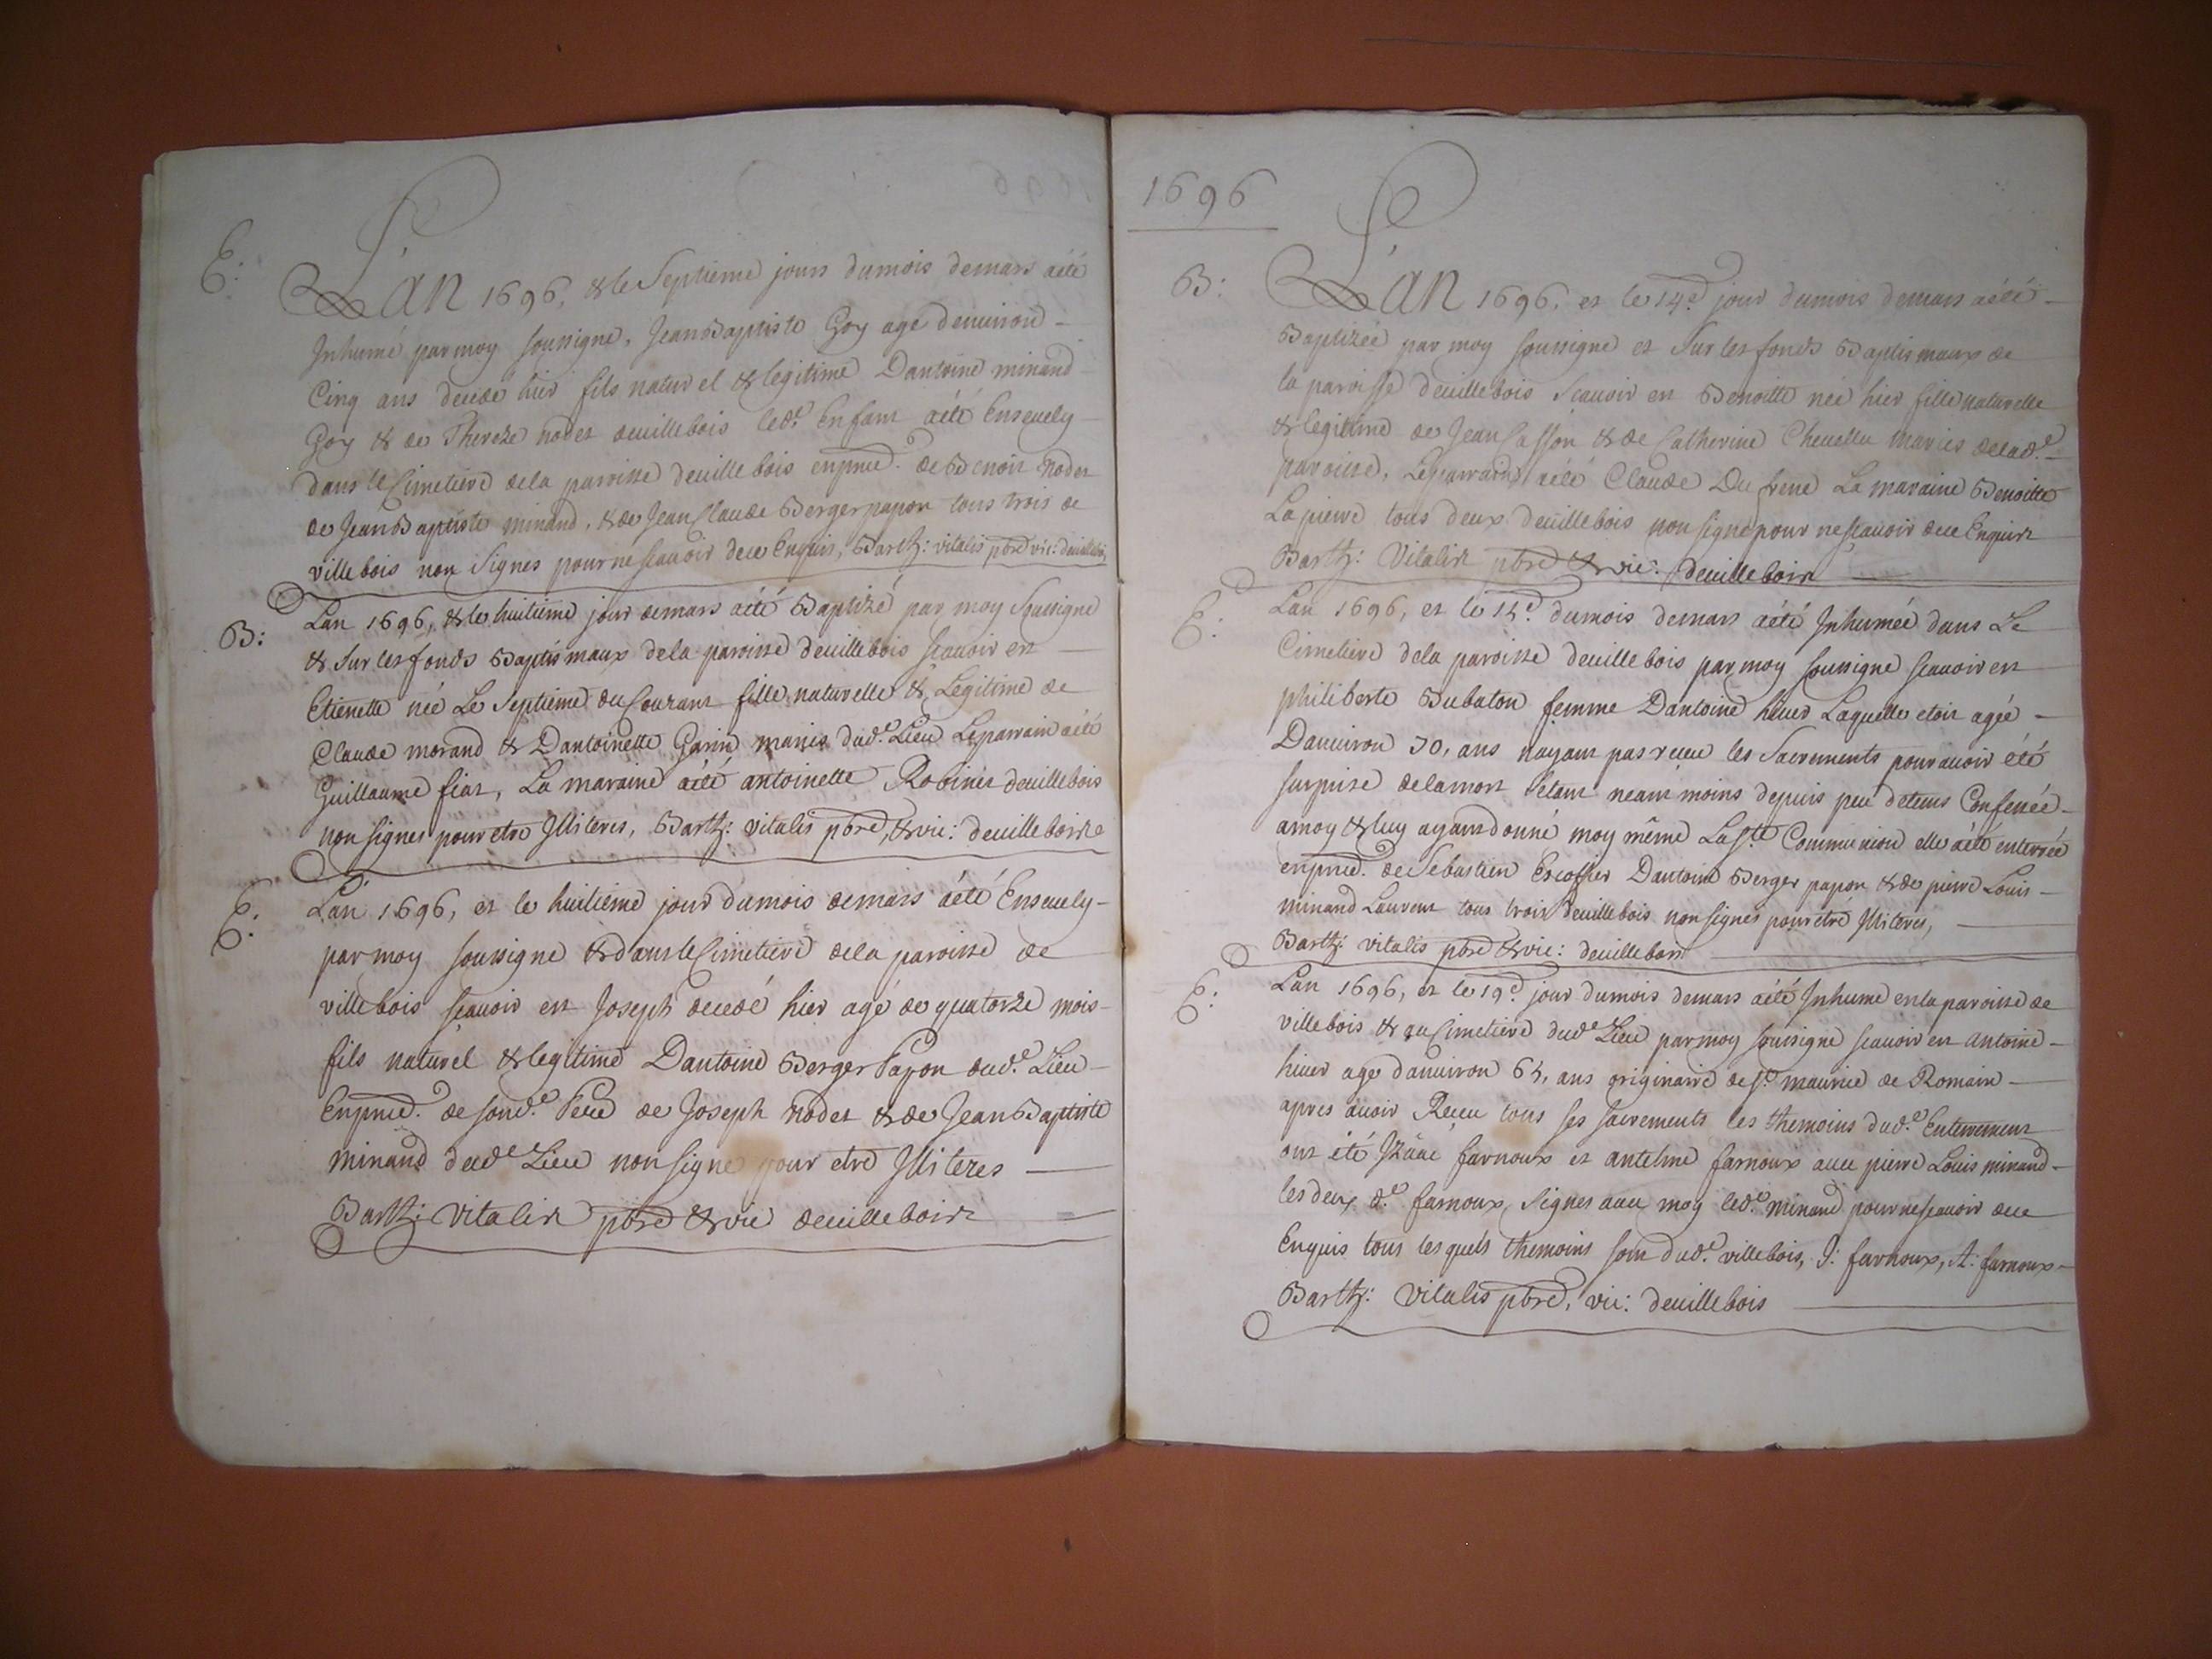 E:
L'an 1696, & le Septieme jours dumois demars aété
Inhumé parmoy soussigne, JeanBaptiste Goy agé denuiron
Cinq ans decedé hier fils naturel & legitime Dantoine minand
Goy & de Thereze nodet deuillebois led.e Enfant aété Enseuely
dans leCimetiere dela paroisse deuillebois enpnce. de Benoit Nodet
de JeanBaptiste minand, & de JeanClaude Bergerpapon tous trois de
villebois non Signes pournescauoir dece Enquis, Barth: vitalis pbre vic: deuillebois
B:
Lan 1696, & le huitieme jour demars aété Baptizé par moy Soussigne
& Sur les fonds Baptismaux dela paroisse deuillebois scauoir est
Etienette née Le Septieme du Courant fille naturelle & Legitime de
Claude morand & Dantoinette Garin maries dud.e Lieu Leparrain aété
Guillaume fiat, La maraine aété antoinette Robinet deuillebois
non signes pour etre Illiteres, Barth: vitalis pbre, & vic: deuillebois
E:
L'an 1696, et le huitieme jour dumois demars aété Enseuely
par moy soussigne & dans leCimetiere dela paroisse de
villebois scauoir est Joseph decedé hier agé de quatorze mois
fils naturel & legitime Dantoine Berger Papon dud.e Lieu
Enpnce. de sond.e Pere de Joseph nodet & de JeanBaptiste
minand dud.e Lieu non signe pour etre Illiteres
Barth: Vitalis pbre & vic deuillebois
1696
B:
L'an 1696, et le 14.e jour dumois demars aété
Baptizée par moy soussigné et Sur les fonds Baptismaux de
la paroisse deuillebois Scauoir est Benoitte née hier fille naturelle
& legitime de Jean Casson & de Catherine Cheuellu maries delad.e
paroisse, Leparrain aété Claude Dufrene La maraine Benoitte
Lapierre tous deux deuillebois non signe pour nescauoir dece Enquis
Barth: Vitalis pbre & vic: deuillebois
E:
Lan 1696, et le 15.e dumois demars aété Inhumée dans Le
Cimetiere dela paroisse deuillebois par moy soussigne scauoir est
philiberte Dubaton femme Dantoine hiuer Laquelle etoit agée
Danuiron 70, ans nayant pas receu les Sacrements pour auoir été
surprise delamort setant neantmoins depuis peu detems Confessée
amoy & luy ayant donné moy même La S.te Communion elle aété enterrée
enpnce. de Sebastien Escoffier Dantoine Berger papon & de pierre Louis
minand Laurent tous trois deuillebois non signes pour etre Illiteres,
Barth: vitalis pbre & vic: deuillebois
E:
Lan 1696, et le 19.e jour dumois demars aété Inhume en la paroisse de
villebois & au Cimetiere dud.e Lieu par moy soussigne scauoir est Antoine
hiuer age danuiron 65, ans originaire de S.t maurice de Romain
apres auoir Receu tous ses sacrements les themoins dud.e Enterrement
ont été Izaac farnoux et antelme farnoux auec pierre Louis minand
les deux d.e farnoux Signes auec moy led.e minand pour nescauoir dece
Enquis tous lesquels themoins sont dud.e villebois, I: farnoux, A: farnoux
Barth: Vitalis pbre, vic: deuillebois